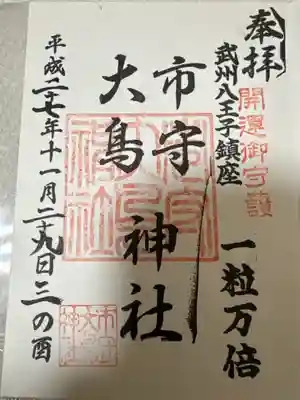 奉拝
開運御守護
武州八王子鎮座
一粒万倍
市守
大鳥
神社
平成二十七年十一月二十九日三の酉